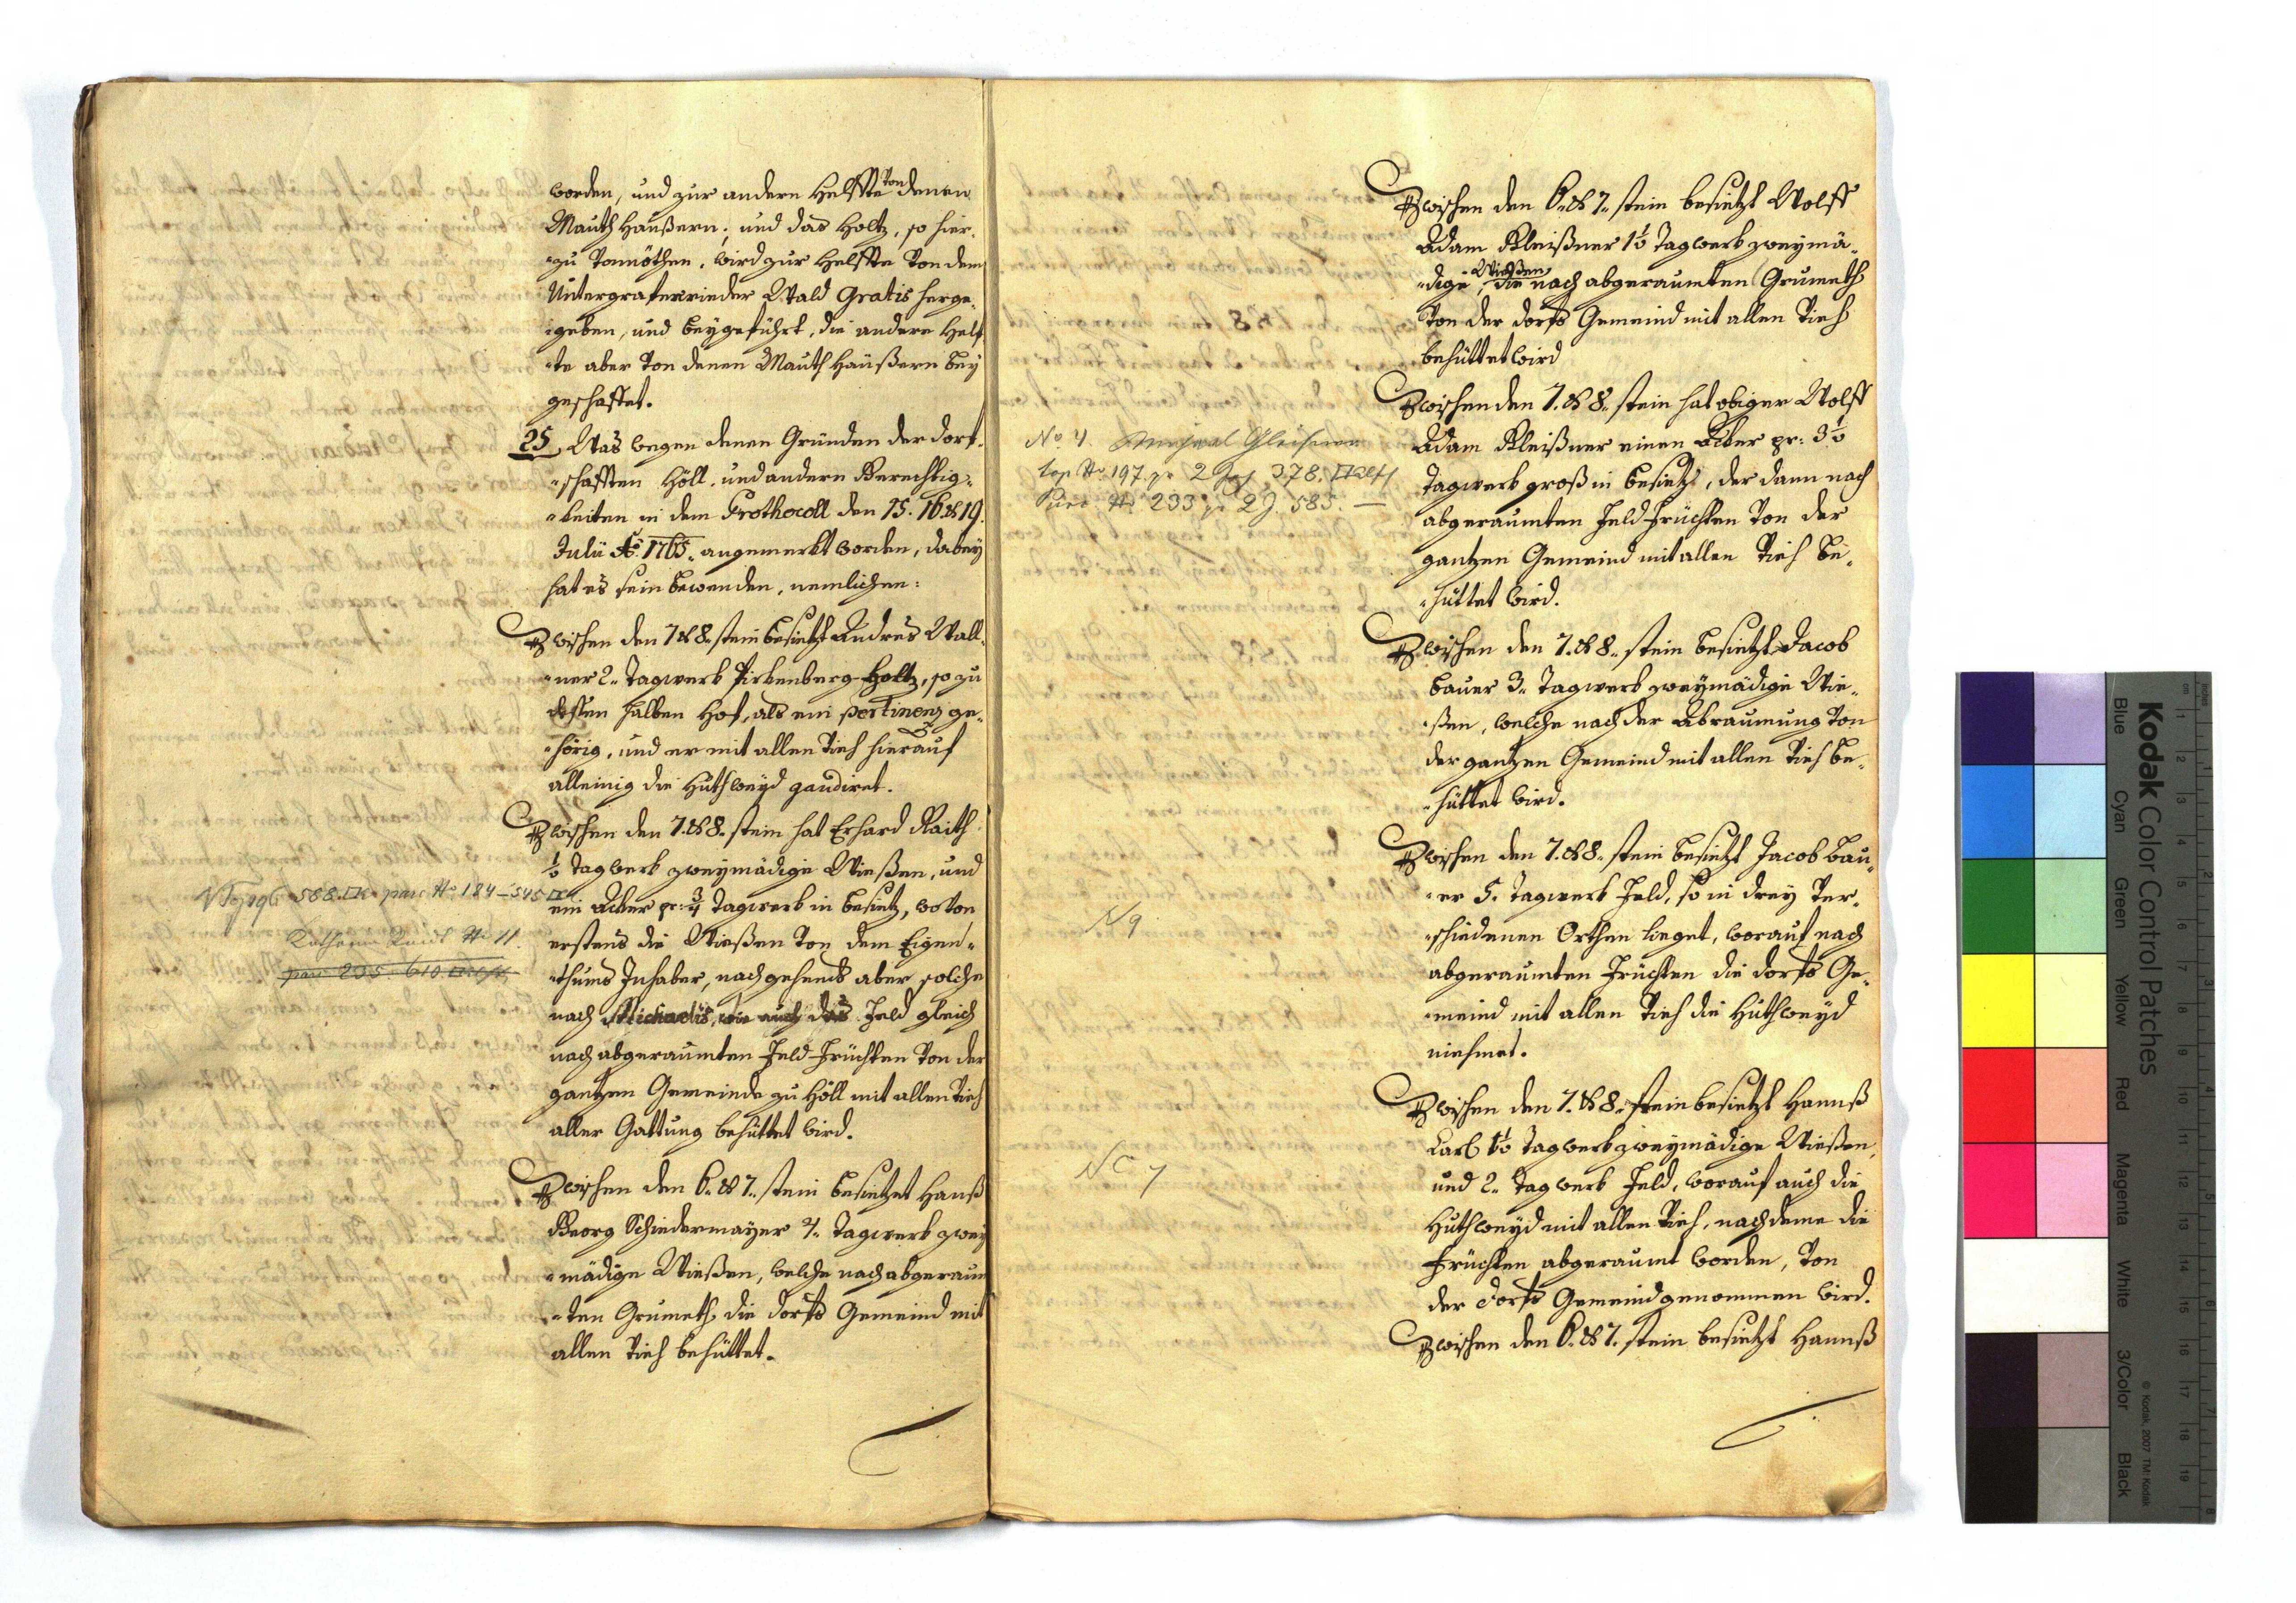 worden, und zur andern Helffte von denen
Mauth Häußern; und das Holtz, so hier-
zu vonnöthen, wird zur Helffte von dem
Untergrafenrieder Wald Gratis herge-
geben, und beygeführt, die andere Helf-
te aber von denen Mauth Häußern bey
geschaffet.
25. Was wegen denen Gründen der Dorf-
schafften Höll, und andern Berechtig-
keiten in dem Prothocoll den 15. 16 & 19.
Julii Ao. 1765. angemerkt worden, dabey
hat es sein bewenden, nemlichen:
Zwischen den 7 & 8. stein besietzt Andres Wall-
ner 2. Tagwerk Pirkenberg Holtz, so zu
dessen halben Hof, als ein pertinenz ge-
hörig, und er mit allen Vieh hierauf
alleinig die Huthweyd gaudiret.
Zwischen den 7. & 8. stein hat Erhard Raith
½ Tagwerk zweymädige Wießen, und
ein Acker pr: ¾ Tagwerk in besietz, wovon
erstens die Wießen von dem Eigen-
thums Inhaber, nachgehends aber solche
nach Michaelis, wie auch das Feld gleich
nach abgeraumten Feld-Früchten von der
gantzen Gemeinde zu Höll mit allen Vieh
aller Gattung behüttet wird.
Zwischen den 6. & 7. stein besietzet Hanß
Georg Schiedermayer 4. Tagwerk zwey
mädige Wießen, welche nach abgeraum
ten Grumeth die Dorfs Gemeind mit
allen Vieh behüttet.
196 588 parc No 184 – 545
No 11.
parc 235. 610
Zwischen den 6. & 7. stein besietzt Wolff
Adam Kleißner 1½ Tagwerk zweymä-
dige Wießen, die nach abgeraumten Grumeth
von der Dorfs Gemeind mit allen Vieh
behüttet wird
Zwischen den 7. & 8. stein hat obiger Wolff
Adam Kleißner einen Acker pr: 3½
Tagwerk groß in besietz, der dann nach
abgeraumten Feld Früchten von der
gantzen Gemeind mit allen Vieh be-
hüttet wird.
Zwischen den 7. & 8. stein besietzt Jacob
Bauer 3. Tagwerk zweymädige Wie-
ßen, welche nach der Abraumung von
der gantzen Gemeind mit allen Vieh be-
hüttet wird.
Zwischen den 7. & 8. stein besietzt Jacob Bau-
er 5. Tagwerk Feld, so in drey ver-
schiedenen Orthen lieget, worauf nach
abgeraumten Früchten die Dorfs Ge-
meind mit allen Vieh die Huthweyd
niehmet.
Zwischen den 7. & 8. stein besietzt Hannß
Carl 1½ Tagwerk zweymädige Wießen,
und 2. Tagwerk Feld, worauf auch die
Huthweyd mit allen Vieh, nachdeme die
Früchten abgeraumt worden, von
der Dorfs Gemeind genommen wird.
Zwischen den 6. & 7. stein besietzt Hannß
No 4.
top No 197 pr 2 378.
Parc No 233 pr 2 J. 585. —
N 9
No 7
Kodak Color Control Patches
Blue Cyan Green Yellow Red Magenta White 3/Color Black
© Kodak, 2007 TM: Kodak
cm 1 2 3 4 5 6 7 8 9 10 11 12 13 14 15 16 17 18 19
inches 1 2 3 4 5 6 7 8